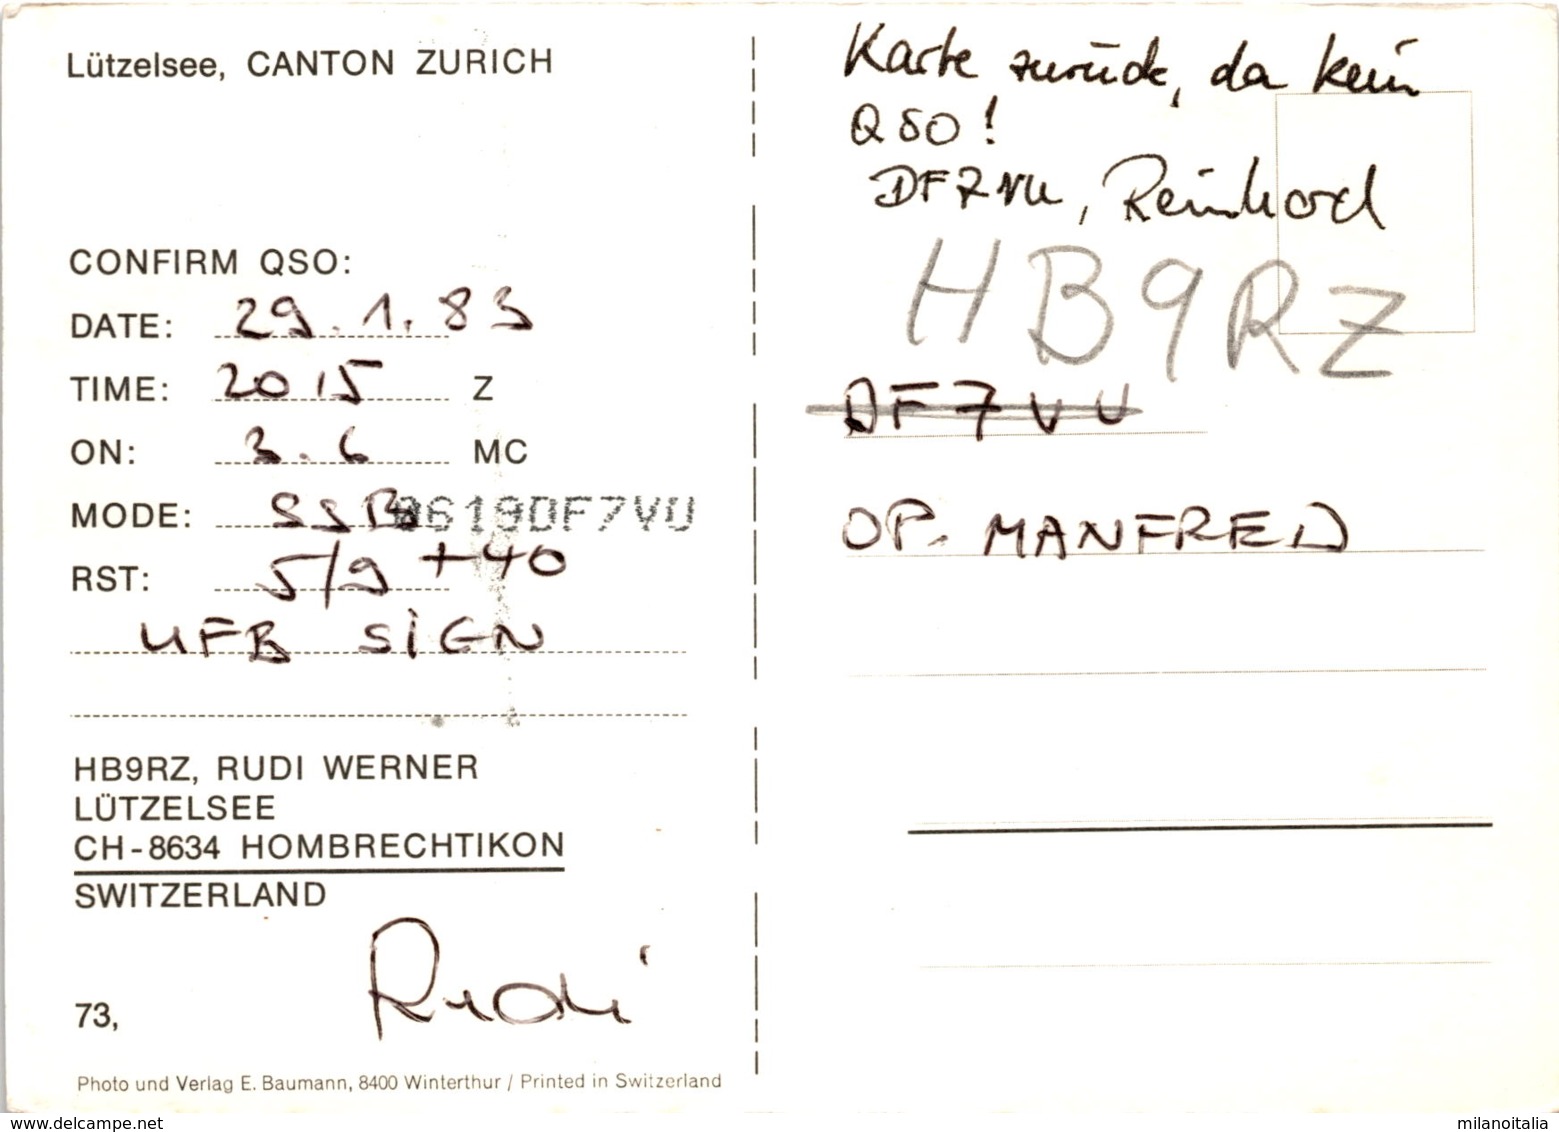 Lützelsee, CANTON ZURICH
CONFIRM QSO:
DATE: 29.1.83
TIME: 2015 Z
ON: 3.6 MC
MODE: SSB
0619DF7VU
RST: 5/9 +40
UFB SiGN
HB9RZ, RUDI WERNER
LÜTZELSEE
CH-8634 HOMBRECHTIKON
SWITZERLAND
73,
Rudi
Photo und Verlag E. Baumann, 8400 Winterthur / Printed in Switzerland
Karte zurück, da kein
QSO!
DF7VU, Reinhard
HB9RZ
DF7VU
OP. MANFRED
www.delcampe.net
milanoitalia